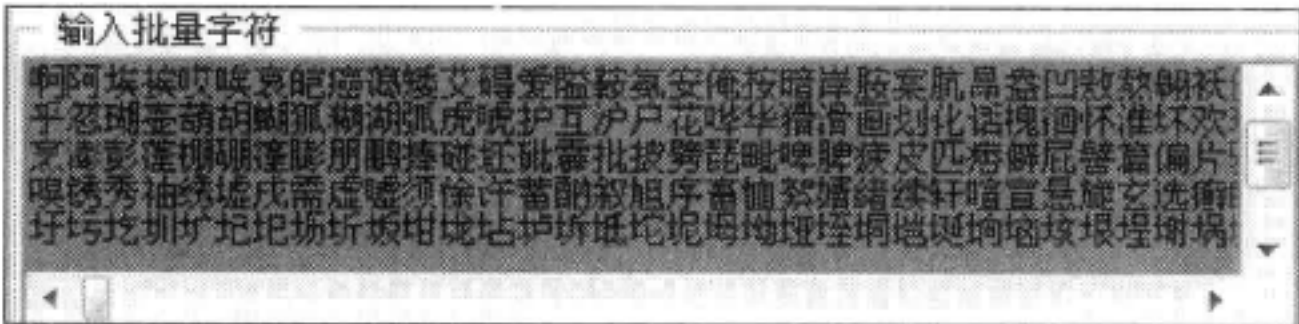 输入批量字符
啊阿埃挨哎唉哀皑癌蔼矮艾碍爱隘鞍氨安俺按暗岸胺案肮昂盎凹敖熬翱袄
乎忽瑚壶葫胡蝴狐糊湖弧虎唬护互沪户花哗华猾滑画划化话槐徊怀淮坏欢
烹澎彭蓬棚硼篷膨朋鹏捧碰坯砒霹批披劈琵毗啤脾疲皮匹痞僻屁譬篇偏片
嗅锈秀袖绣墟戌需虚嘘须徐许蓄酗叙旭序畜恤絮婿绪续轩喧宣悬旋玄选
圩圬圪圳圹圮圯坜圻坂坩垅坫垆坼坻坨坭坶坳垭垤垌垲埏垧垴垓垠埕埘埚